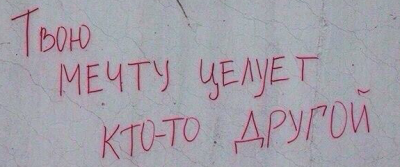 Твою
МЕЧТУ ЦЕЛУЕТ
КТО-ТО ДРУГОЙ